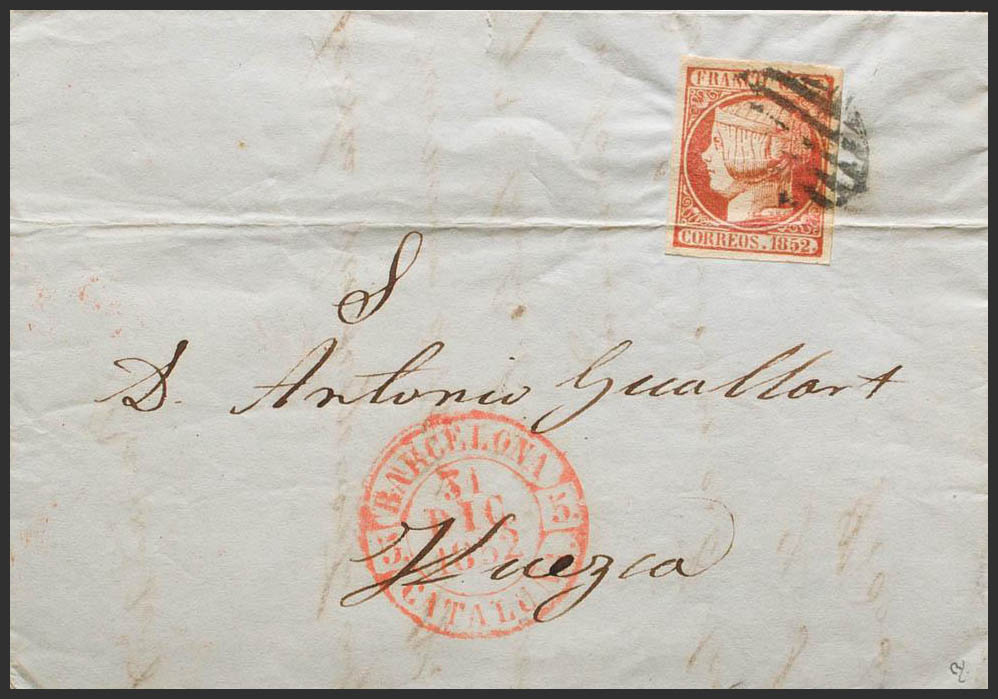 FRAN
CORREOS. 1852.
S
D. Antonio Guallart
BARCELONA
31
DIC
1852
5. 5.
CATALU
Huezca